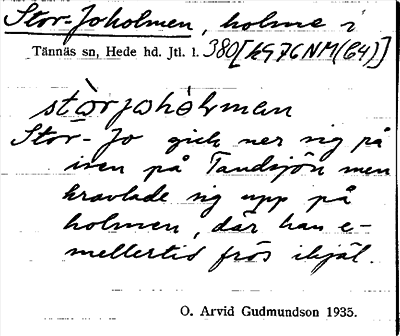 Stor-Joholmen, holme i
Tännäs sn, Hede hd. Jtl. l. 380[kG76NM(64)]
stòrjohòlman
Stor-Jo gick ner sig på
isen på Tandsjön men
kravlade sig upp på
holmen, där han e-
mellertid frös ihjäl.
O. Arvid Gudmundson 1935.